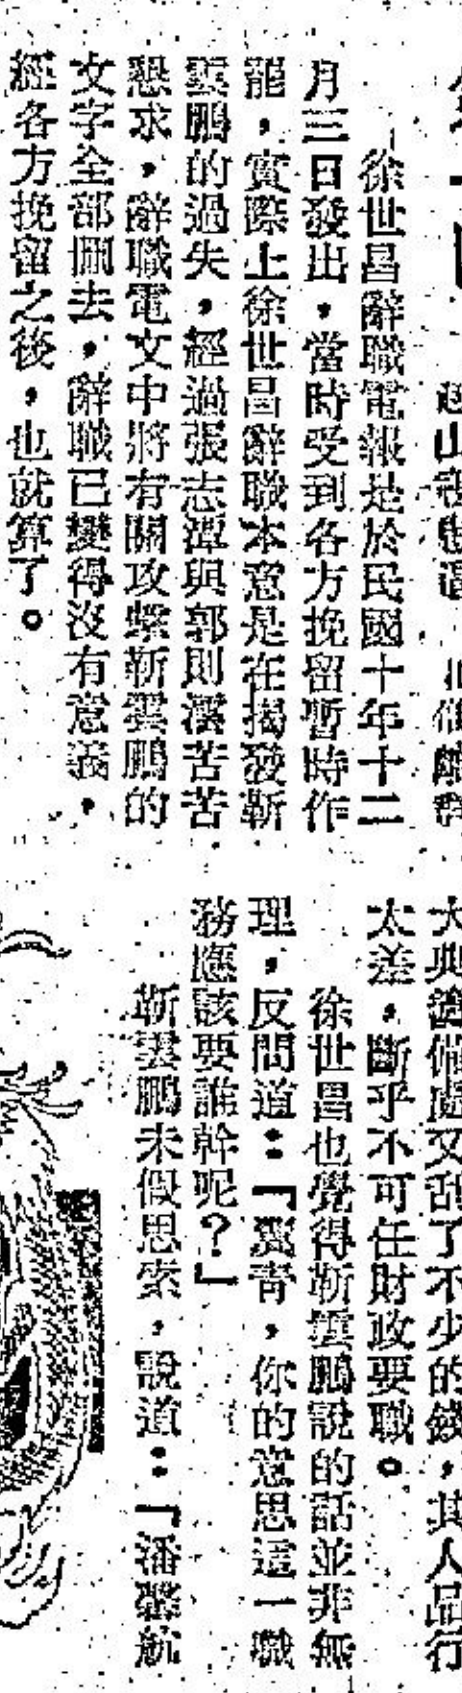 徐世昌辭職電報是於民國十年十二
月三日發出，當時受到各方挽留暫時作
罷，實際上徐世昌辭職本意是在揭發靳
雲鵬的過失，經過張志潭與郭則澐苦苦
懇求，辭職電文中將有關攻擊靳雲鵬的
文字全部刪去，辭職已變得沒有意義，
經各方挽留之後，也就算了。
大典籌備處又刮了不少的錢，其人品行
太差，斷乎不可任財政要職。
徐世昌也覺得靳雲鵬說的話並非無
理，反問道：「翼青，你的意思這一職
務應該要誰幹呢？」
靳雲鵬未假思索，說道：「潘馨航